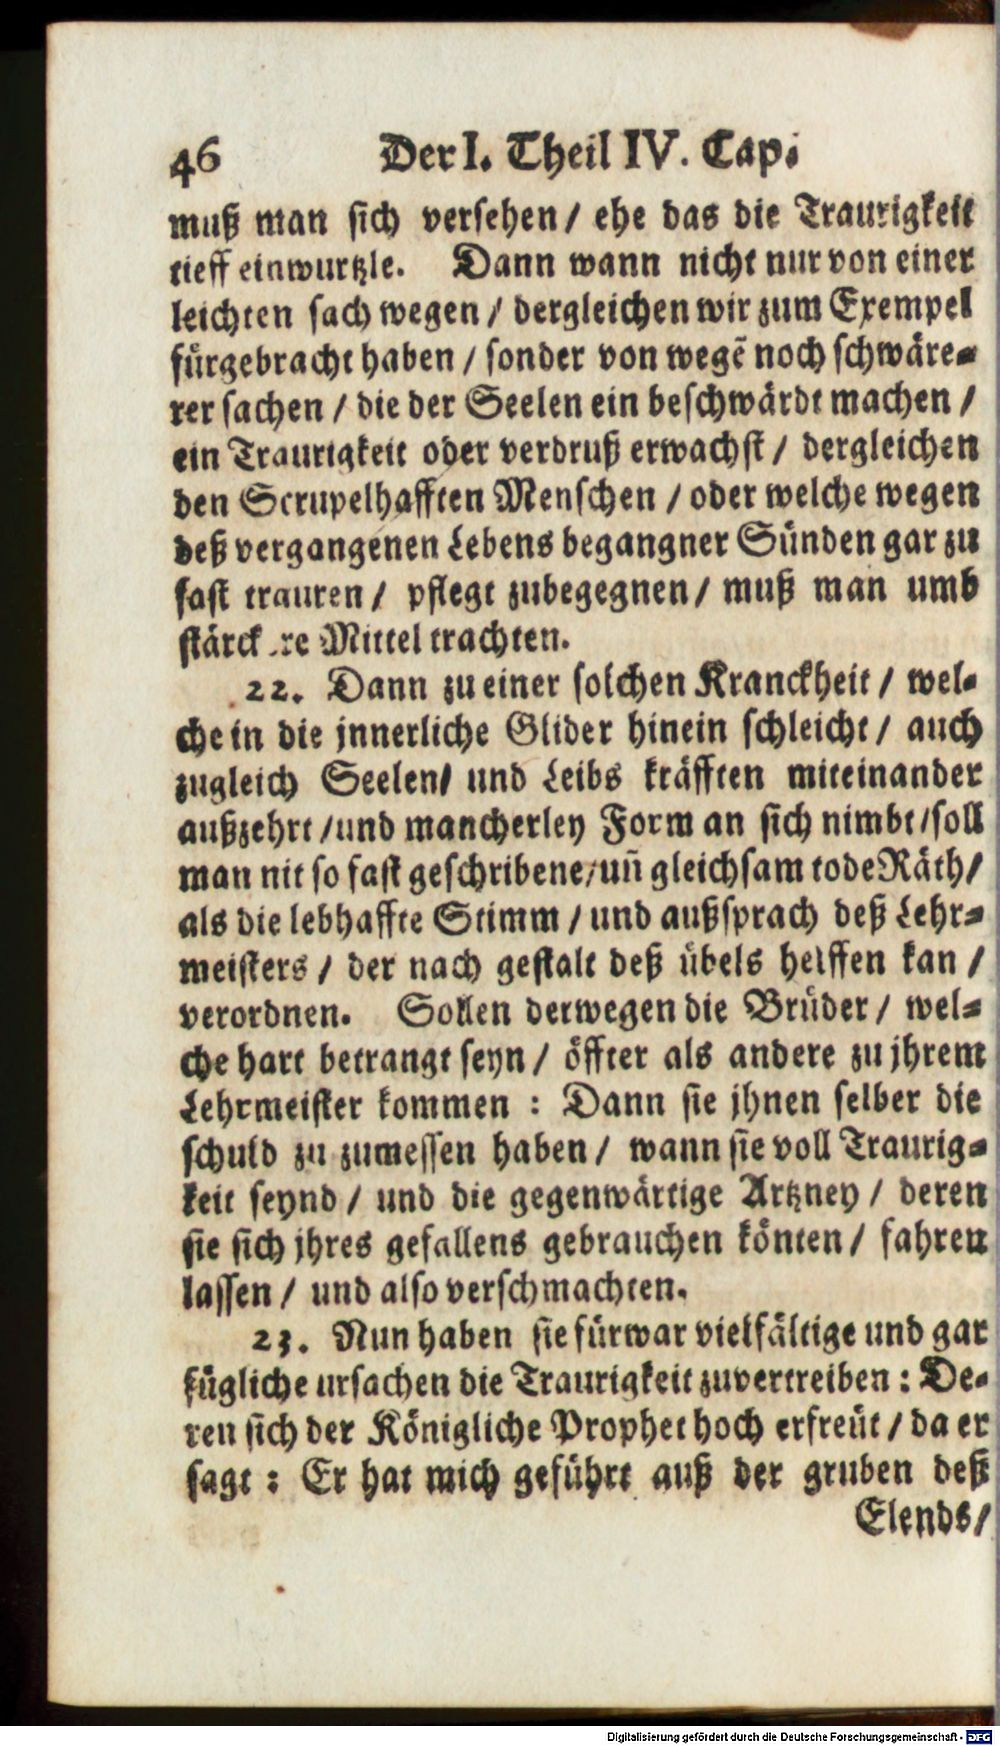 46 Der I. Theil IV. Cap.
muß man sich versehen / ehe das die Traurigkeit
tieff einwurtzle. Dann wann nicht nur von einer
leichten sach wegen / dergleichen wir zum Exempel
fürgebracht haben / sonder von wegē noch schwäre-
rer sachen / die der Seelen ein beschwärdt machen /
ein Traurigkeit oder verdruß erwachst / dergleichen
den Scrupelhafften Menschen / oder welche wegen
deß vergangenen Lebens begangner Sünden gar zu
fast trauren / pflegt zubegegnen / muß man umb
stärck re Mittel trachten.
22. Dann zu einer solchen Kranckheit / wel-
che in die jnnerliche Glider hinein schleicht / auch
zugleich Seelen / und Leibs kräfften miteinander
außzehrt / und mancherley Form an sich nimbt / soll
man nit so fast geschribene / uñ gleichsam tode Räth /
als die lebhaffte Stimm / und außsprach deß Lehr-
meisters / der nach gestalt deß übels helffen kan /
verordnen. Sollen derwegen die Brüder / wel-
che hart betrangt seyn / öffter als andere zu jhrem
Lehrmeister kommen : Dann sie jhnen selber die
schuld zu zumessen haben / wann sie voll Traurig-
keit seynd / und die gegenwärtige Artzney / deren
sie sich jhres gefallens gebrauchen könten / fahren
lassen / und also verschmachten.
23. Nun haben sie fürwar vielfältige und gar
fügliche ursachen die Traurigkeit zuvertreiben : De-
ren sich der Königliche Prophet hoch erfreüt / da er
sagt : Er hat mich geführt auß der gruben deß
Elends /
Digitalisierung gefördert durch die Deutsche Forschungsgemeinschaft - DFG